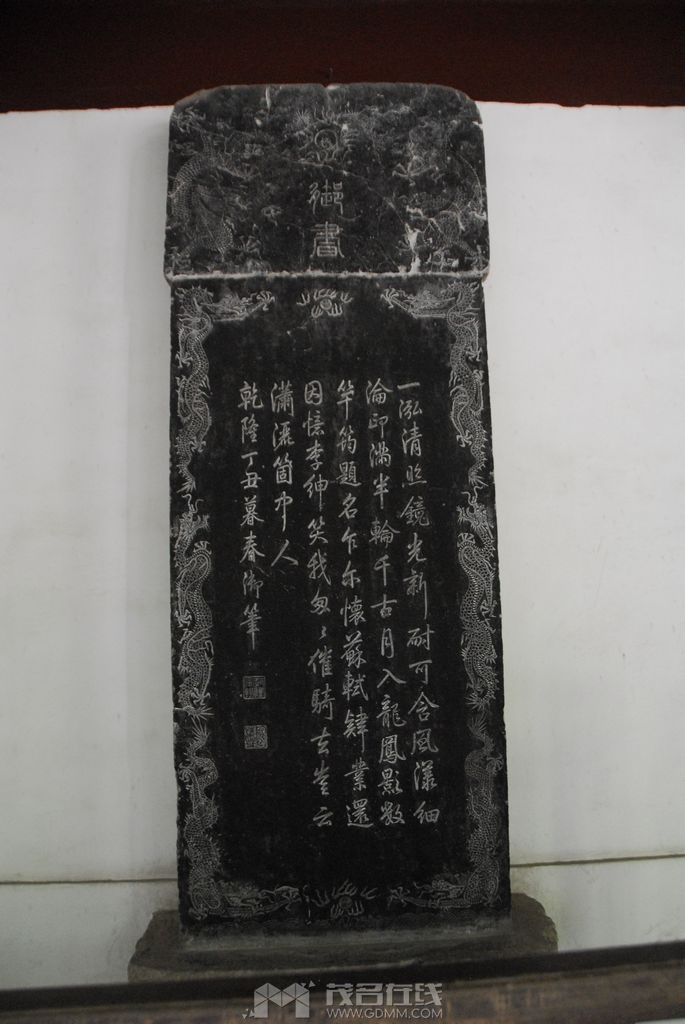 御書
一泓清照鏡光新耐可含風漾細
淪印滿半輪千古月入龍鳳影數
竿筠題名乍尔懷蘇軾肄業還
因憶李紳笑我匆〻催騎去豈云
瀟灑箇中人
乾隆丁丑暮春御筆
茂名在线
WWW.GDMM.COM